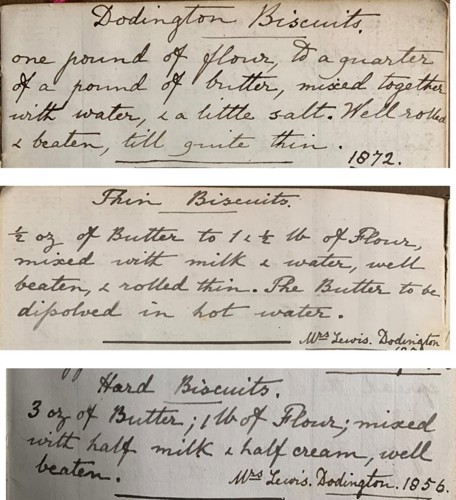 Dodington Biscuits.
one pound of flour, to a quarter
of a pound of butter, mixed together
with water, & a little salt. Well rolled
& beaten, till quite thin.
1872.
Thin Biscuits.
½ oz of Butter to 1 & ½ lb of Flour,
mixed with milk & water, well
beaten, & rolled thin. The Butter to be
dissolved in hot water.
Mrs Lewis. Dodington
Hard Biscuits.
3 oz of Butter; 1 lb of Flour; mixed
with half milk & half cream, well
beaten.
Mrs Lewis. Dodington. 1856.